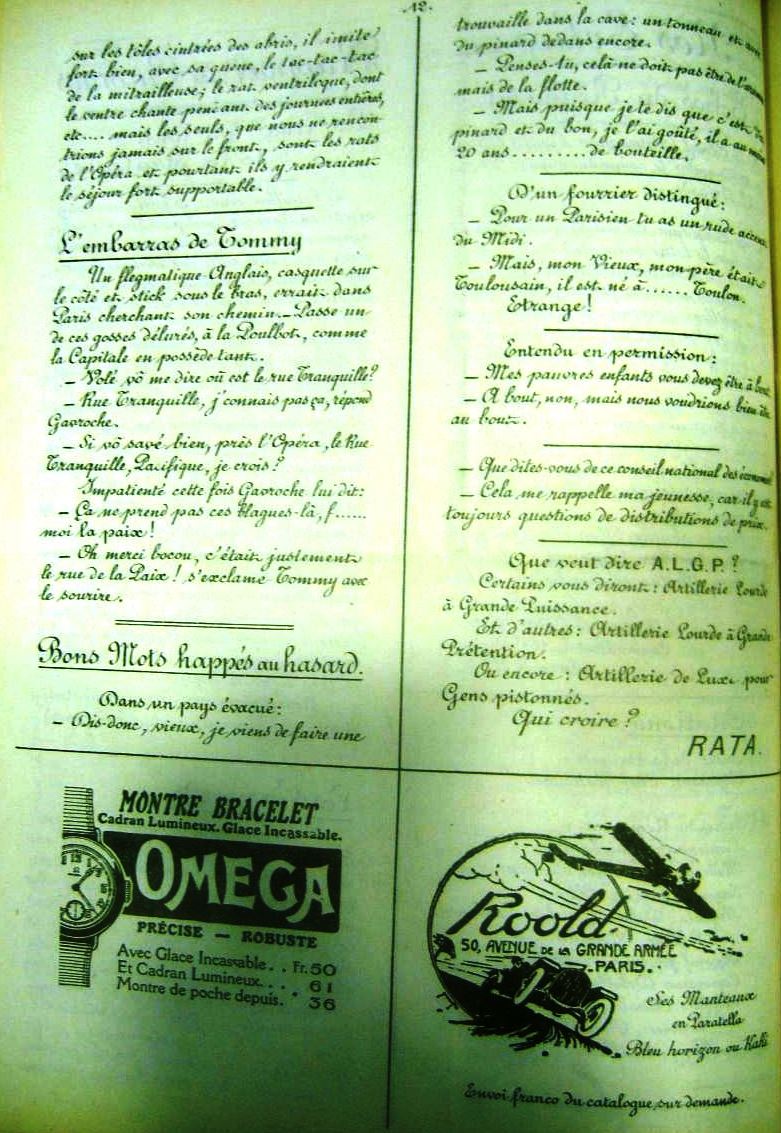 -12-
sur les tôles cintrées des abris, il imite
fort bien, avec sa queue, le tac-tac-tac
de la mitrailleuse; le rat ventriloque, dont
le ventre chante pendant des journées entières,
etc.... mais les seuls, que nous ne rencon-
trions jamais sur le front, sont les rats
de l'Opéra et pourtant ils y rendraient
le séjour fort supportable.
L'embarras de Tommy
Un flegmatique Anglais, casquette sur
le côté et stick sous le bras, errait dans
Paris cherchant son chemin. — Passe un
de ces gosses délurés, à la Poulbot, comme
la Capitale en possède tant.
— Volé vô me dire où est le rue Tranquille?
— Rue Tranquille, j'connais pas ça, répond
Gavroche.
— Si vô savé bien, près l'Opéra, le Rue
Tranquille, Pacifique, je crois?
Impatienté cette fois Gavroche lui dit:
— Ça ne prend pas ces blagues-là, f......
moi la paix!
— Oh merci bocou, c'était justement
le rue de la Paix! s'exclame Tommy avec
le sourire.
Bons Mots happés au hasard.
Dans un pays évacué:
— Dis-donc, vieux, je viens de faire une
trouvaille dans la cave: un tonneau et
du pinard dedans encore.
— Penses-tu, celà ne doit pas être de
mais de la flotte.
— Mais puisque je te dis que c'est
pinard et du bon, je l'ai goûté, il a au
20 ans.........de bouteille.
D'un fourrier distingué:
— Pour un Parisien tu as un rude accent
du Midi.
— Mais, mon Vieux, mon père était
Toulousain, il est né à...... Toulon.
Etrange!
Entendu en permission:
— Mes pauvres enfants vous devez être à bout.
— A bout, non, mais nous voudrions bien être
au bout.
— Que dites-vous de ce conseil national des
— Cela, me rappelle ma jeunesse, car il y
toujours questions de distributions de prix.
Que veut dire A.L.G.P.?
Certains vous diront: Artillerie Lourde
à Grande Puissance.
Et d'autres: Artillerie Lourde à Grande
Prétention.
Ou encore: Artillerie de Luxe pour
Gens pistonnés.
Qui croire?
RATA.
MONTRE BRACELET
Cadran Lumineux. Glace Incassable.
OMEGA
PRÉCISE — ROBUSTE
Avec Glace Incassable.. Fr. 50
Et Cadran Lumineux... 61
Montre de poche depuis. " 36
Roold
50, AVENUE DE LA GRANDE ARMÉE
- PARIS. -
Ses Manteaux
en Paratella
Bleu horizon ou Kaki
Envoi franco du catalogue sur demande.